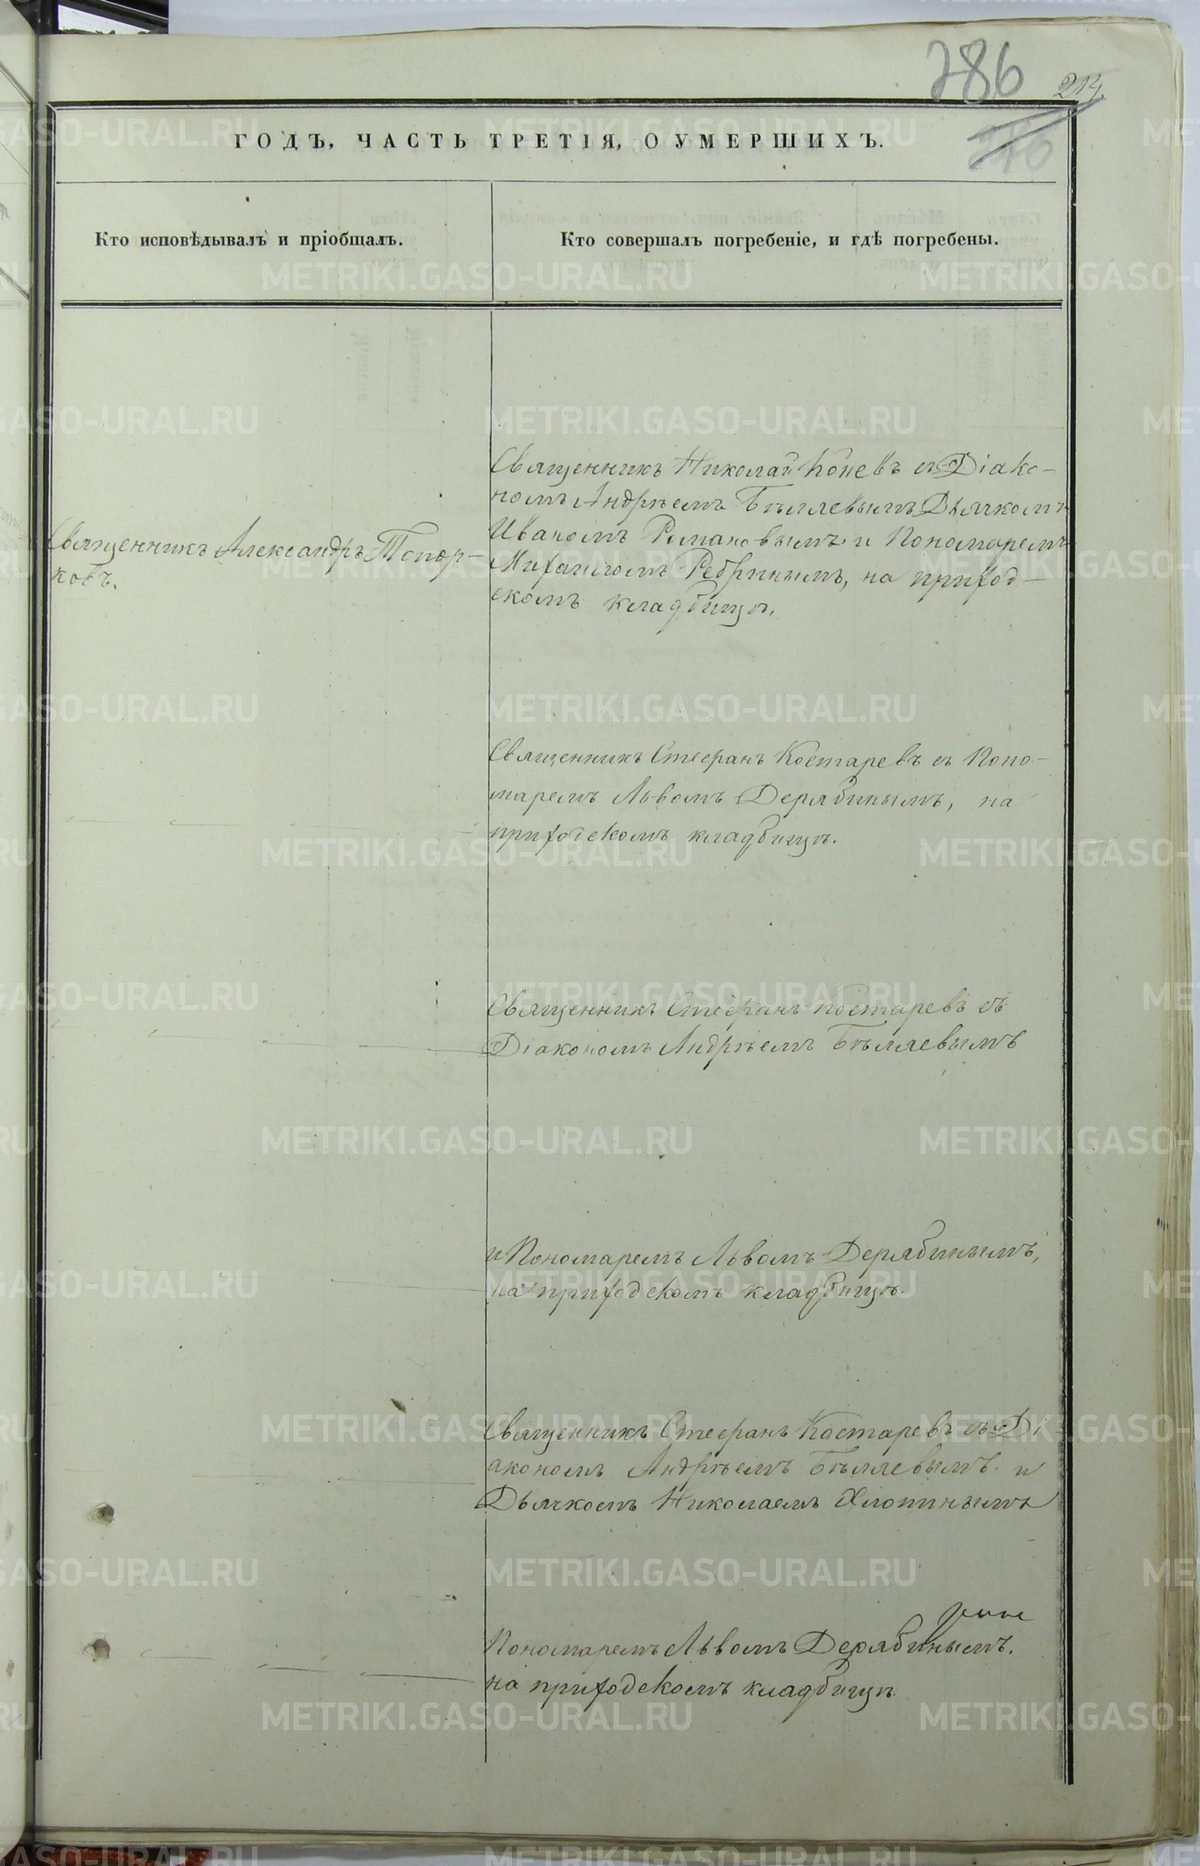 786
213.
ГОДЪ, ЧАСТЬ ТРЕТІЯ, О УМЕРШИХЪ.
Кто исповѣдывалъ и пріобщалъ.
Кто совершалъ погребеніе, и гдѣ погребены.
Священникъ Александръ Топор-
ковъ.
Священникъ Николай Коневъ съ Діако-
номъ Андрѣемъ Бѣляевымъ Дьячкомъ
Иваномъ Романовымъ и Пономаремъ
Михаиломъ Ребринымъ, на приход-
скомъ кладбищѣ.
Священникъ Стефанъ Костаревъ съ Поно-
маремъ Львомъ Дерябинымъ, на
приходскомъ кладбищѣ.
Священникъ Стефанъ Костаревъ съ
Діакономъ Андрѣемъ Бѣляевымъ
и Пономаремъ Львомъ Дерябинымъ,
на приходскомъ кладбищѣ.
Священникъ Стефанъ Костаревъ съ Ді
акономъ Андрѣемъ Бѣляевымъ и
Дьячкомъ Николаемъ Хлопинымъ
Пономаремъ Львомъ Дерябинымъ.
на приходскомъ кладбищѣ
METRIKI.GASO-URAL.RU